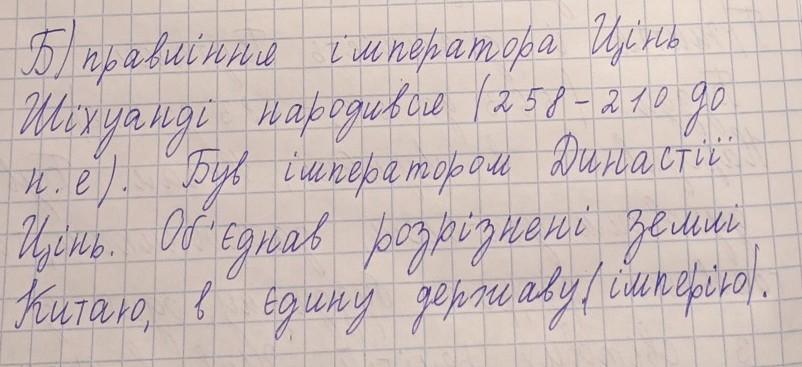 Б) правління імператора Цінь
Шіхуанді народився (258-210 до
н.е). Був імператором Династії
Цінь. Об'єднав розрізнені землі
Китаю, в єдину державу.(імперію).